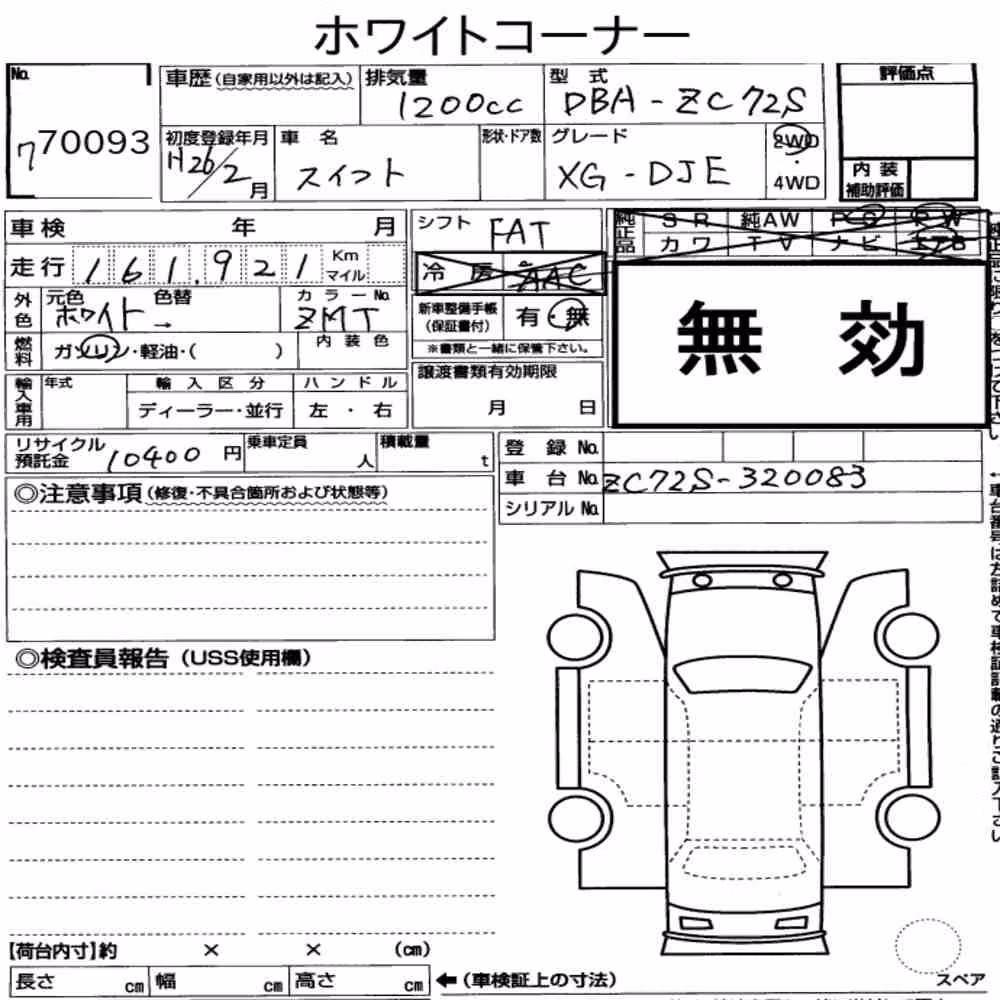 ホワイトコーナー
No. 770093
車歴(自家用以外は記入) 排気量 1200cc 型式 DBA-ZC72S 評価点
初度登録年月 H26/2月 車名 スイフト 形状・ドア数 グレード XG-DJE 2WD・4WD
内装補助評価
車検 年 月 シフト FAT 純正品 SR 純AW PS PW
走行 161,921 Km マイル 冷房 AAC カワ TV ナビ
外色 元色 ホワイト 色替 → カラーNo. ZMT 新車整備手帳(保証書付) 有・無
※書類と一緒に保管下さい。
無効
燃料 ガソリン・軽油・( ) 内装色
輸入車用 年式 輸入区分 ディーラー・並行 ハンドル 左・右 譲渡書類有効期限 月 日
リサイクル預託金 10400円 乗車定員 人 積載量 t 登録No.
車台No. ZC72S-320083
シリアルNo.
◎注意事項(修復・不具合箇所および状態等)
◎検査員報告(USS使用欄)
【荷台内寸】約 × × (cm)
長さ cm 幅 cm 高さ cm ←(車検証上の寸法) スペア